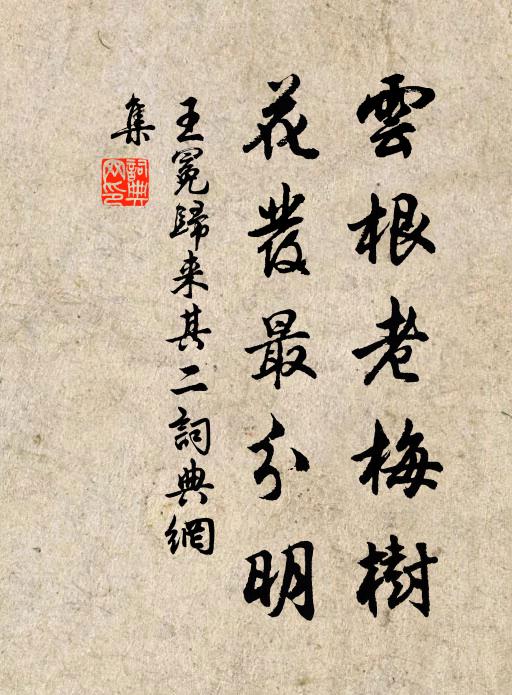 雲根老梅樹
花發最分明
王冕歸来其二詞典網
集
詞典網印